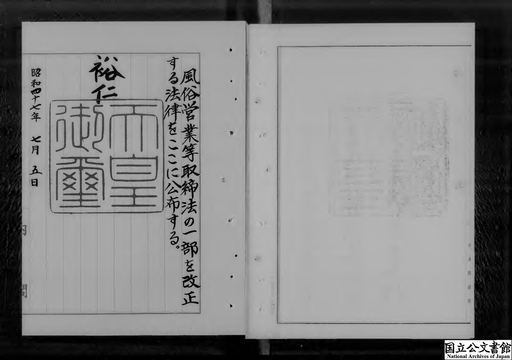 風俗営業等取締法の一部を改正
する法律をここに公布する。
裕仁
天皇
御璽
昭和四十七年 七月 五日
内閣
国立公文書館
National Archives of Japan